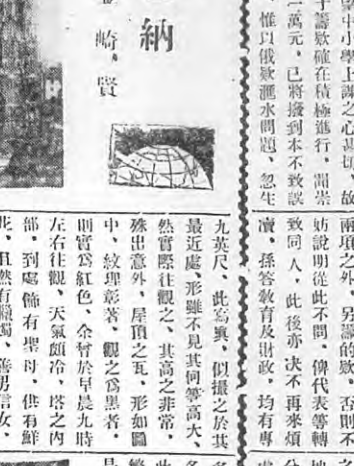 中小學上課之心甚切、故
于籌欵確在積極進行、聞崇
二萬元、已將撥到本不致誤
惟以俄欵滙水問題、忽生
兩項之外、另謀的欵、否則不
妨說明從此不問、俾代表等轉
致同人、此後亦决不再來煩
瀆、孫答敎育及財政、均有專
納
崎 賢
九英尺、此寫眞、似撮之於其
最近處、形雖不見其何等高大、
然實際往觀之、其高之非常、
殊出意外、屋頂之瓦、形如圓
中、紋理彰著、觀之爲黑者、
則實爲紅色、余曾於早晨九時
左右往觀、天氣頗冷、塔之內
部、到處飾有聖母、供有鮮
花、且然有蠟燭、善男信女、